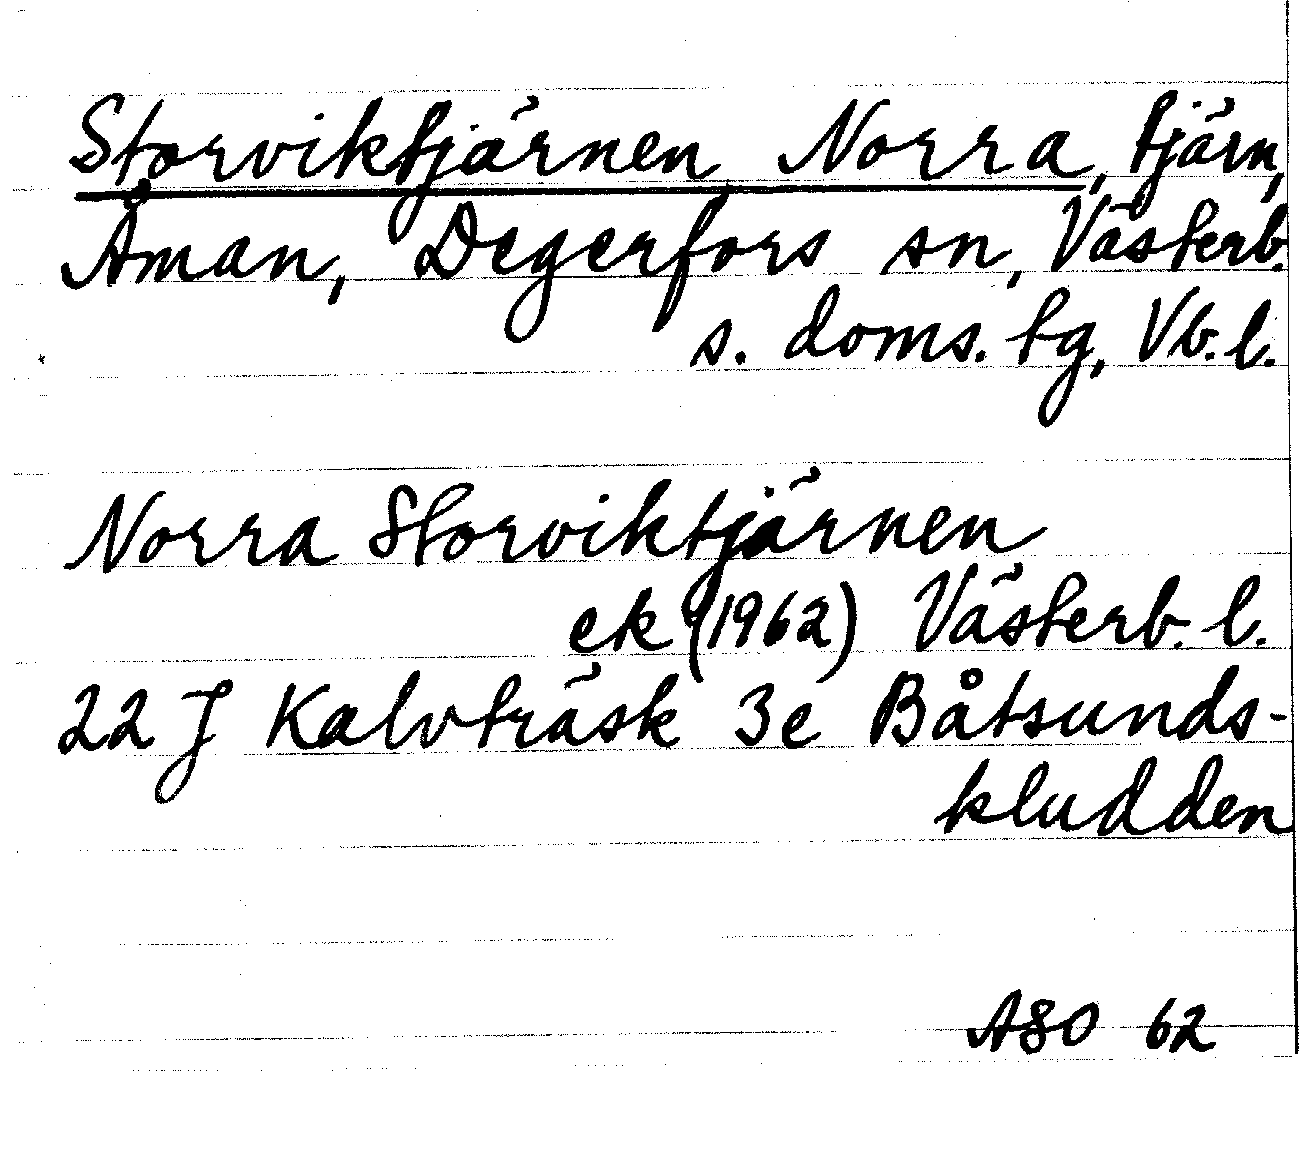 Storviktjärnen, Norra, tjärn,
Åman, Degerfors sn, Västerb.
s. doms. tg, Vb. l.
Norra Storviktjärnen
ek (1962) Västerb. l.
22 J Kalvträsk 3e Båtsunds-
kludden
ASO 62